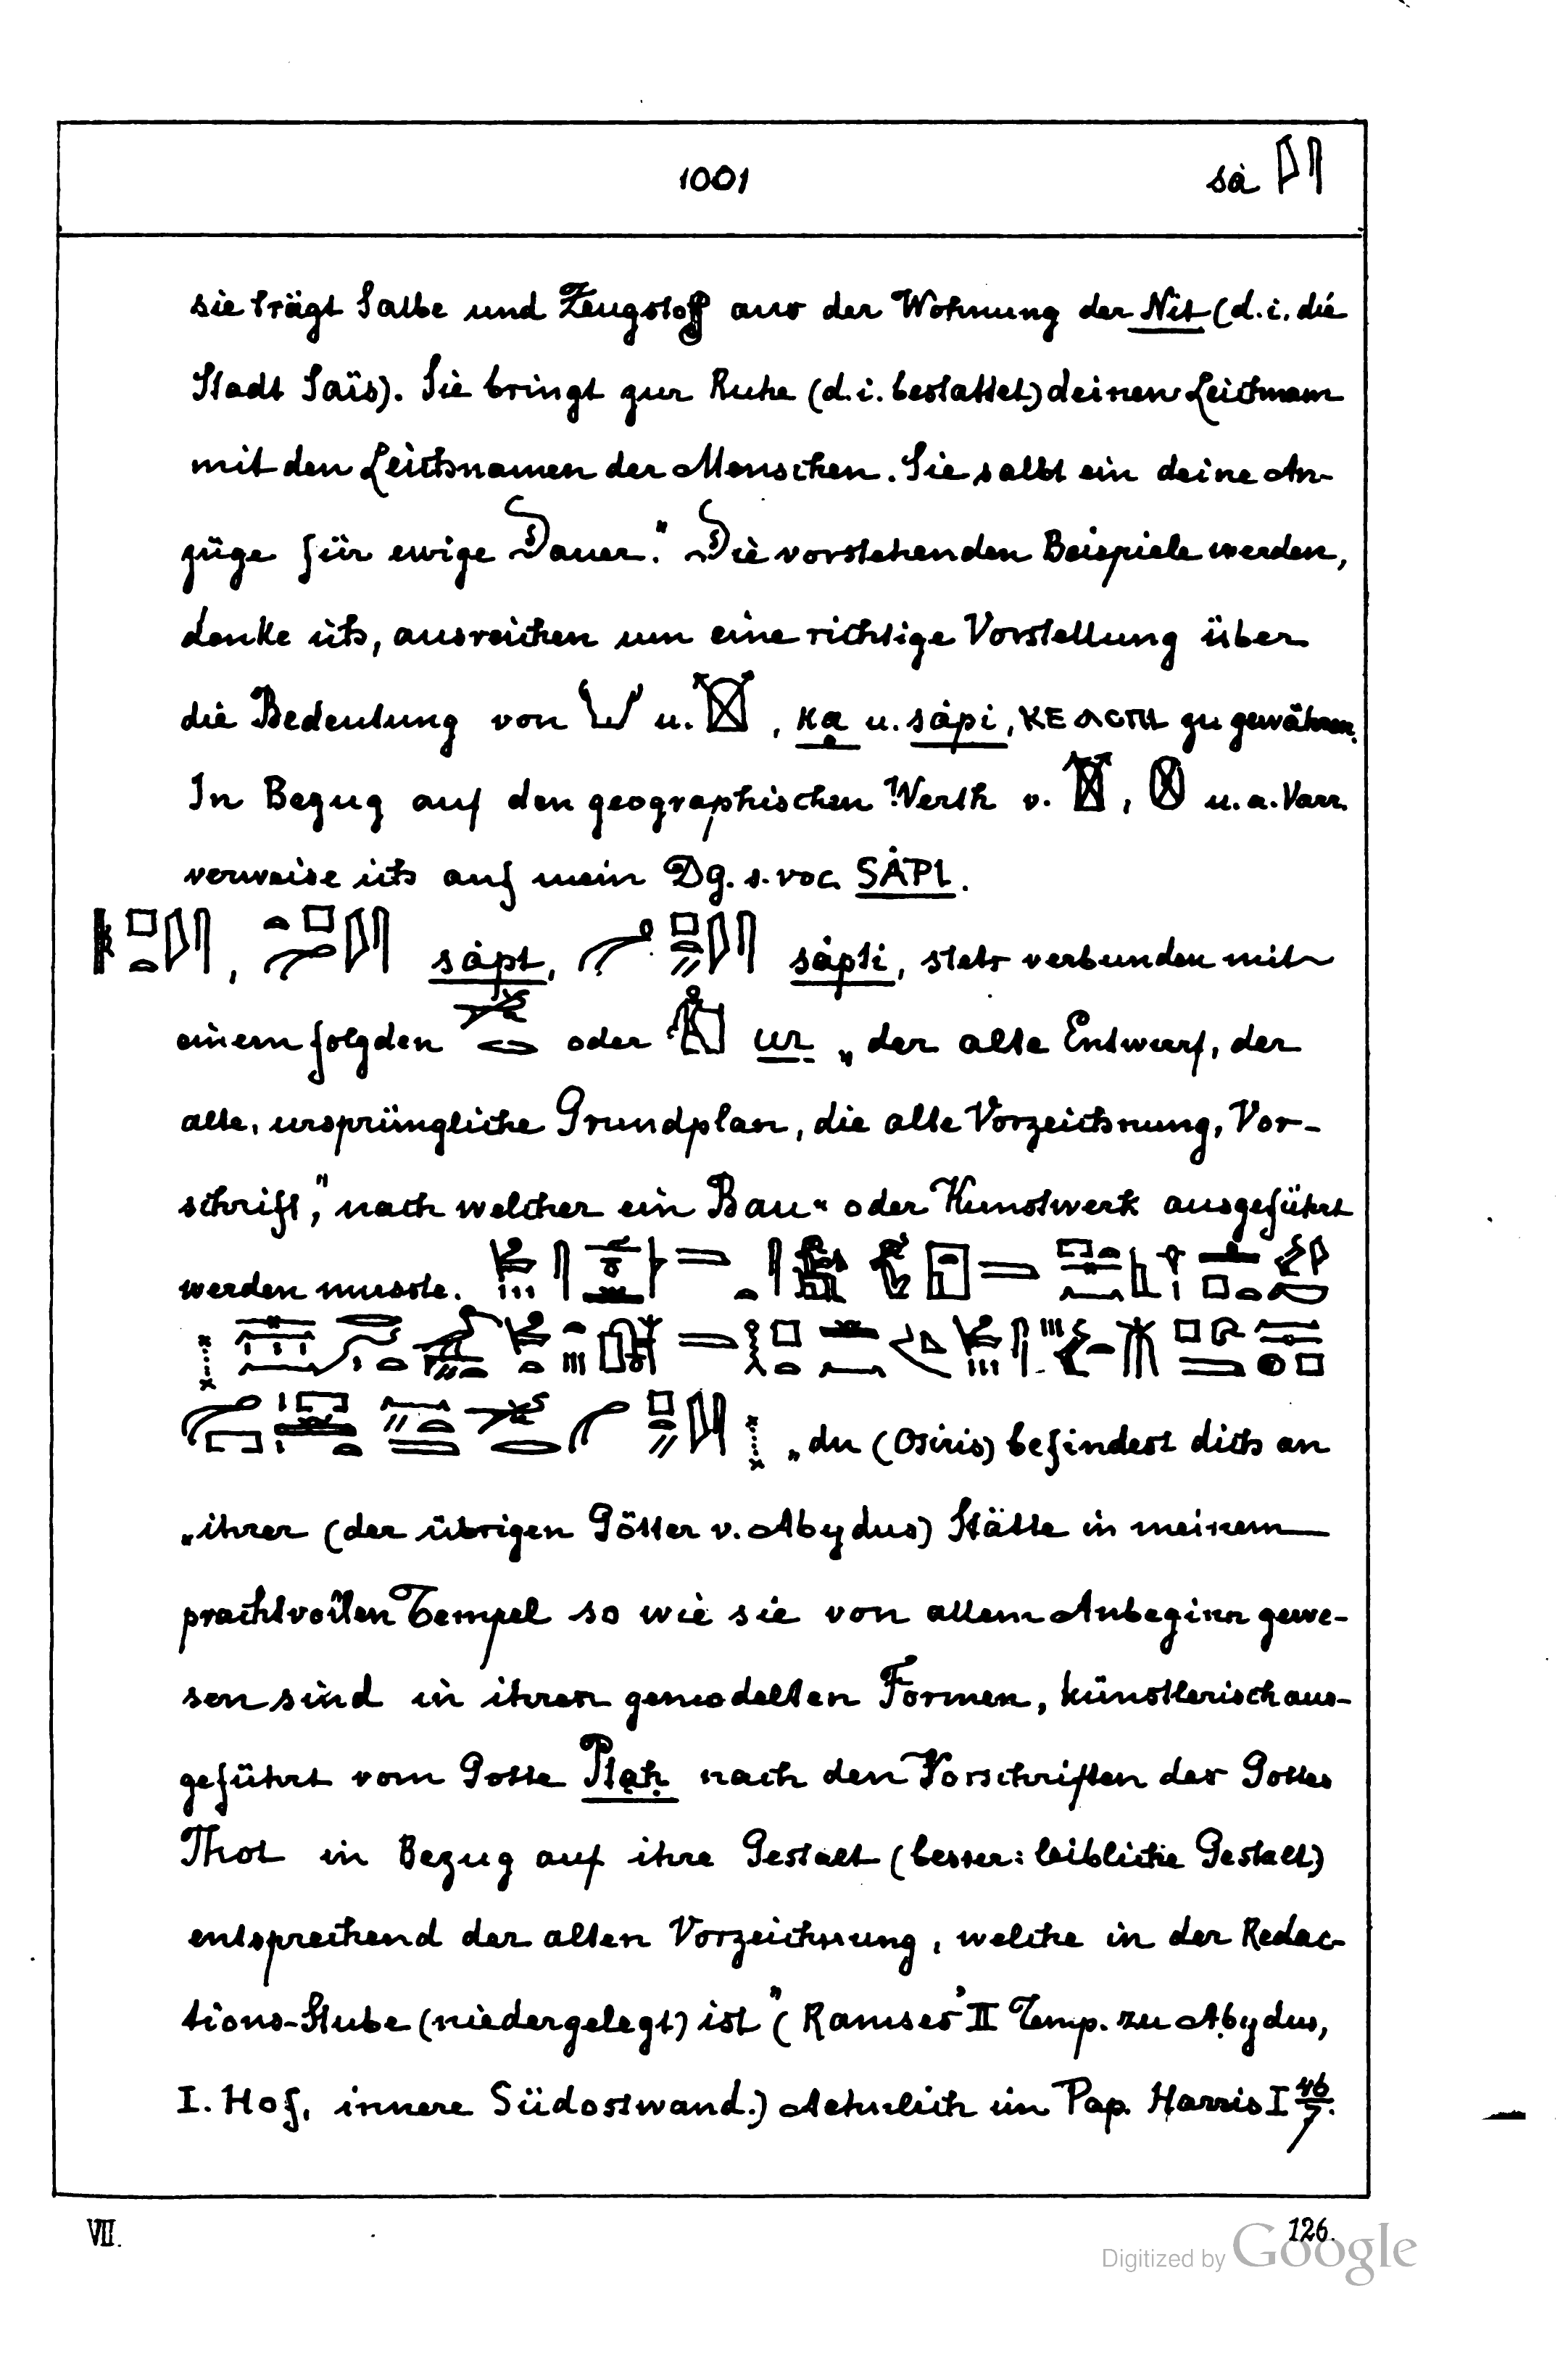 1001 sȧ
sie trägt Salbe und Zeugstoff aus der Wohnung der Nit (d. i. die
Stadt Saïs). Sie bringt zur Ruhe (d. i. bestattet) deinen Leichnam
mit den Leichnamen der Menschen. Sie salbt ein deine An-
züge für ewige Dauer." Die vorstehenden Beispiele werden,
denke ich, ausreichen um eine richtige Vorstellung über
die Bedeutung von u. , ka u. sȧpi, zu gewähren.
In Bezug auf den geographischen Werth v. , u. a. Varr.
verweise ich auf mein Dg. s. voc. SȦPI.
, sȧpt, sȧpti, stets verbunden mit
einem folgden oder ur „der alte Entwurf, der
alte, ursprüngliche Grundplan, die alte Vorzeichnung, Vor-
schrift," nach welcher ein Bau- oder Kunstwerk ausgeführt
werden musste.
„du (Osiris) befindest dich an
„ihrer (der übrigen Götter v. Abydus) Stätte in meinem
prachtvollen Tempel so wie sie von allem Anbeginn gewe-
sen sind in ihren gemodelten Formen, künstlerisch aus-
geführt vom Gotte Ptaḥ nach den Vorschriften des Gottes
Thot in Bezug auf ihre Gestalt (besser: leibliche Gestalt)
entsprechend der alten Vorzeichnung, welche in der Redac-
tions-Stube (niedergelegt) ist" (Ramses' II Temp. zu Abydus,
I. Hof, innere Südostwand.) Aehnlich im Pap. Harris I 46/7.
VII. 126.
Digitized by Google